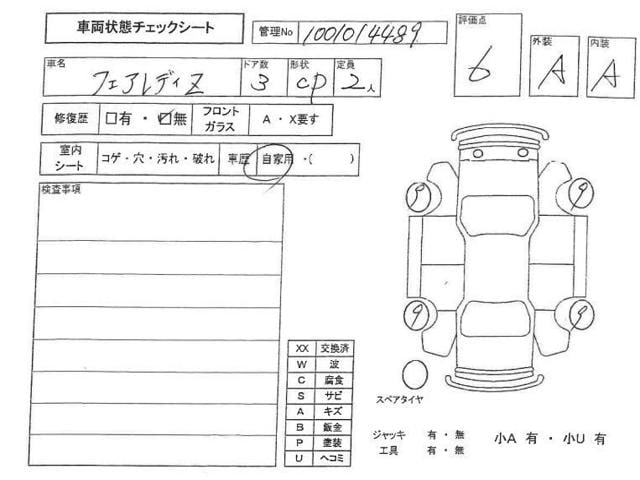 車両状態チェックシート 管理No 1001014489
評価点 6 外装 A 内装 A
車名 フェアレディZ ドア数 3 形状 cp 定員 2人
修復歴 □有・☑無 フロントガラス A・X要す
室内シート コゲ・穴・汚れ・破れ 車歴 自家用・( )
検査事項
9
9
9
XX 交換済
W 波
C 腐食
S サビ
A キズ
B 鈑金
P 塗装
U ヘコミ
スペアタイヤ
ジャッキ 有・無
工具 有・無
小A 有・小U 有